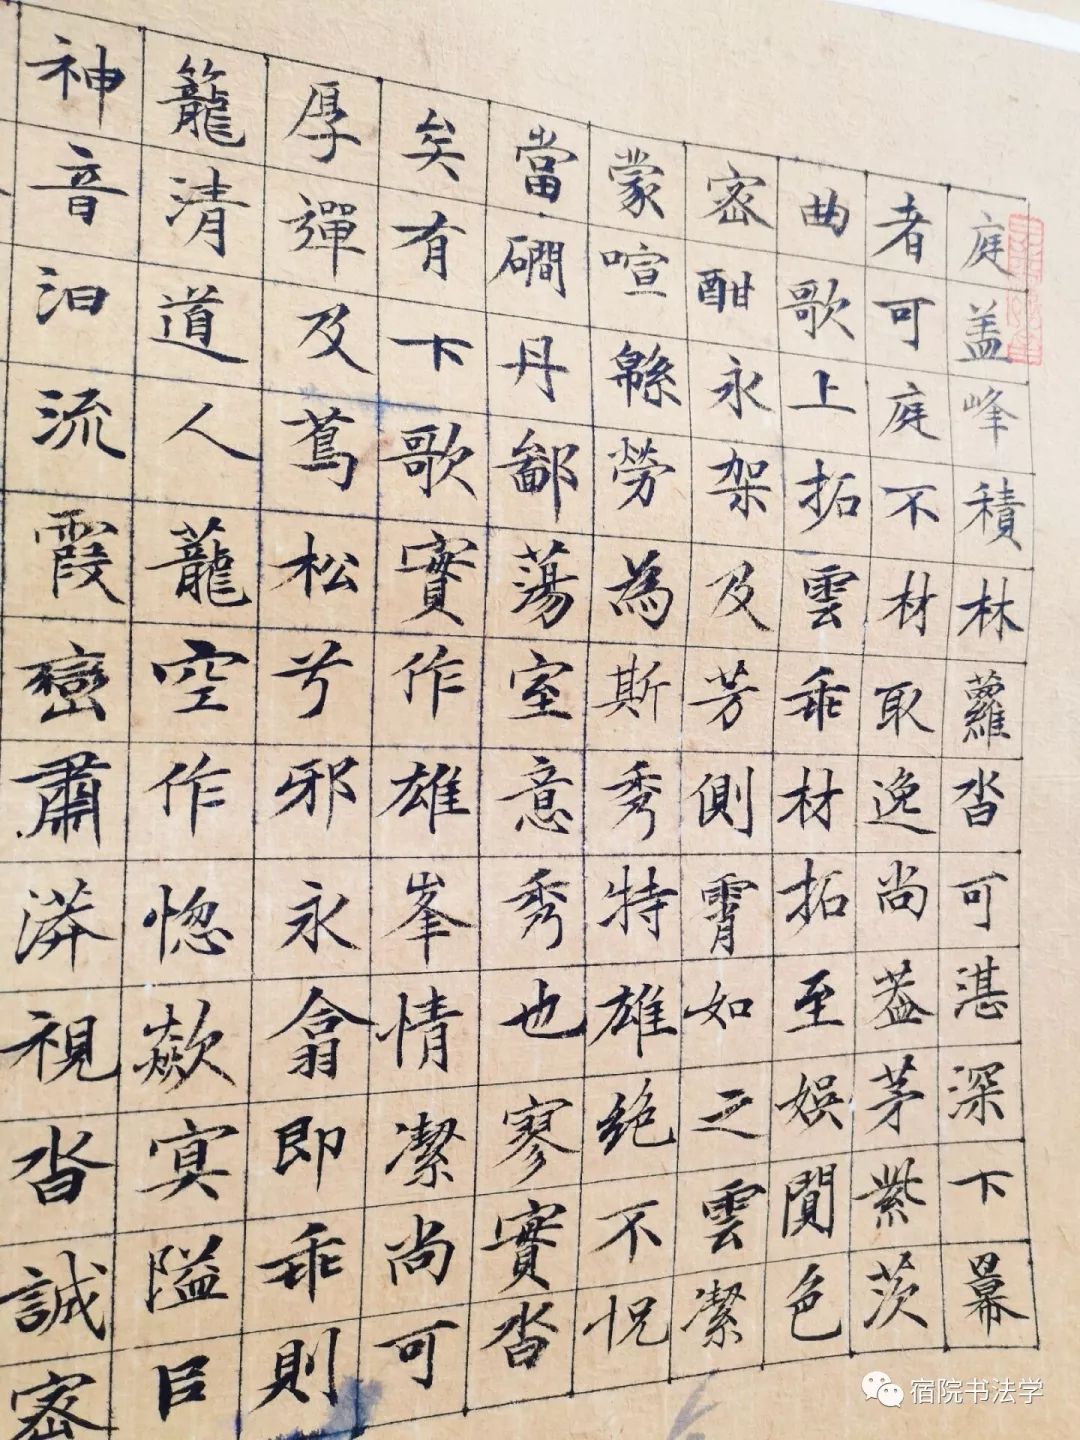 庭盖峰積林蘿沓可湛深下冪
者可庭不材取逸尚葢茅紫茨
曲歌上拓雲乖材拓至娛閒色
密酣永架及芳側霄如之雲潔
蒙喧緜勞為斯秀特雄絶不怳
當磵丹鄙蕩室意秀也寥實沓
矣有下歌實作雄峯情潔尚可
厚彈及蔦松兮邪永翕即乖則
籠清道人蘢空作惚歘冥隘臣
神音汩流霞巒肅漭視沓誠密
宿院书法学